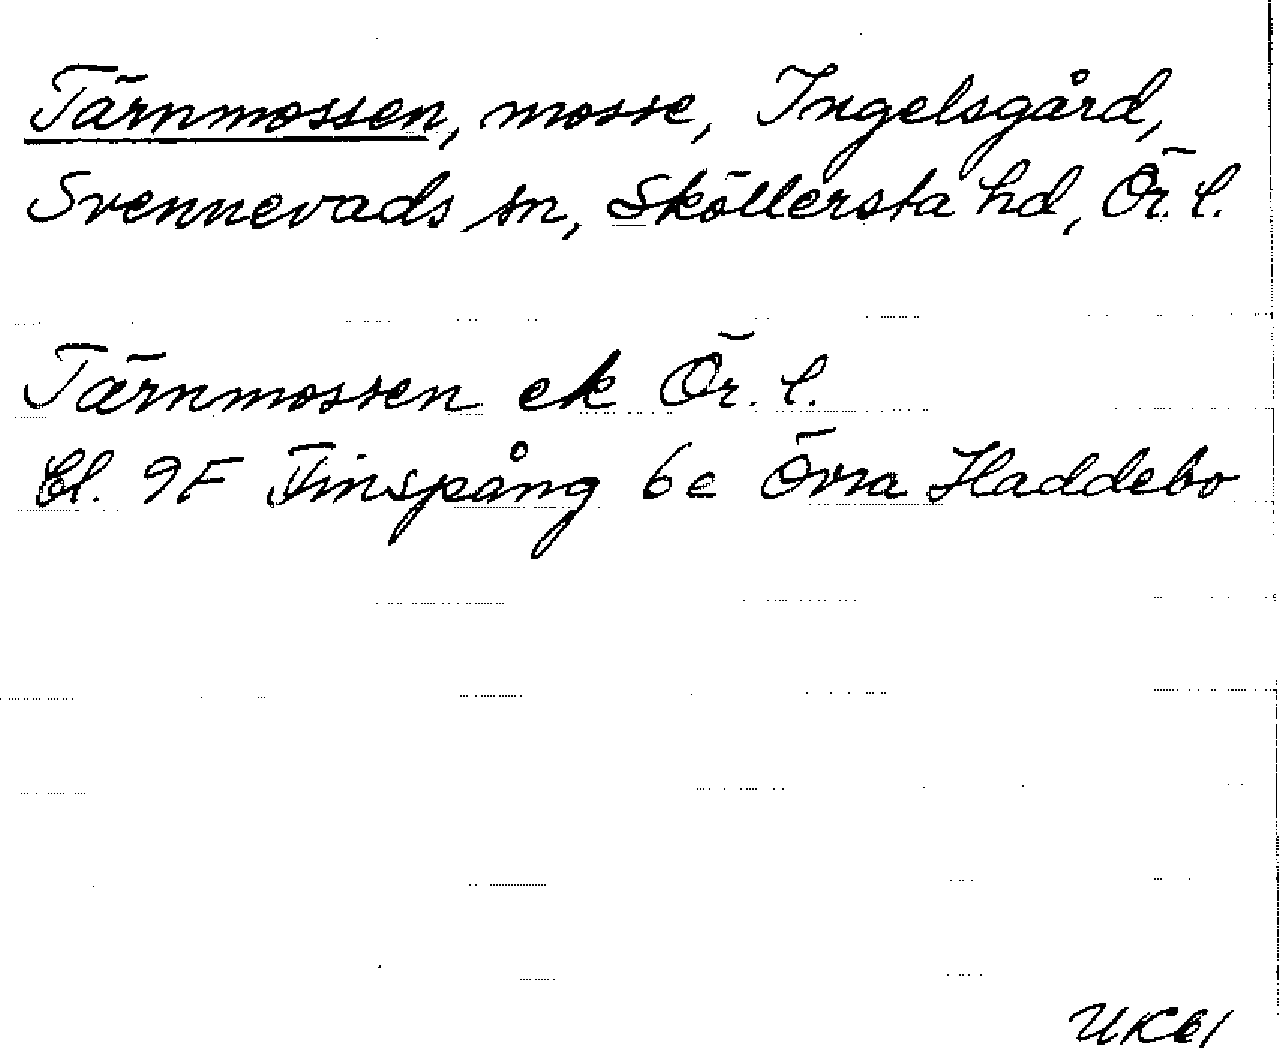 Tärnmossen, mosse, Ingelsgård,
Svennevads sn, Sköllersta hd, Ör. l.
Tärnmossen ek Ör. l.
Bl. 9F Finspång 6e Övra Haddebo